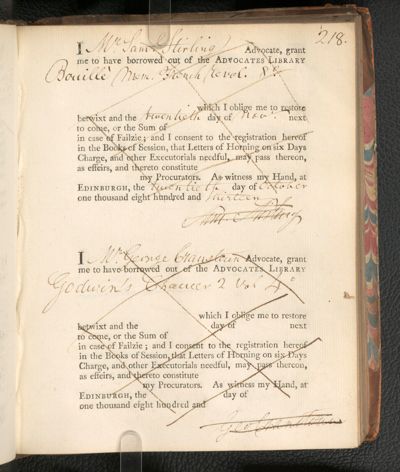 218.
I Mr. Saml. Stirling Advocate, grant
me to have borrowed out of the ADVOCATES LIBRARY
Bouillé Mem. French Revol. 8vo.
which I oblige me to restore
betwixt and the twentieth day of Novr. next
to come, or the Sum of
in case of Failzie; and I consent to the registration hereof
in the Books of Session, that Letters of Horning on six Days
Charge, and other Executorials needful, may pass thereon,
as effeirs, and thereto constitute
my Procurators. As witness my Hand, at
EDINBURGH, the twentieth day of October
one thousand eight hundred and thirteen
Saml. Stirling
I Mr. George Cranstoun Advocate, grant
me to have borrowed out of the ADVOCATES LIBRARY
Godwin's Chaucer 2 Vol 4o
which I oblige me to restore
betwixt and the day of next
to come, or the Sum of
in case of Failzie; and I consent to the registration hereof
in the Books of Session, that Letters of Horning on six Days
Charge, and other Executorials needful, may pass thereon,
as effeirs, and thereto constitute
my Procurators. As witness my Hand, at
EDINBURGH, the day of
one thousand eight hundred and
Geo Cranstoun